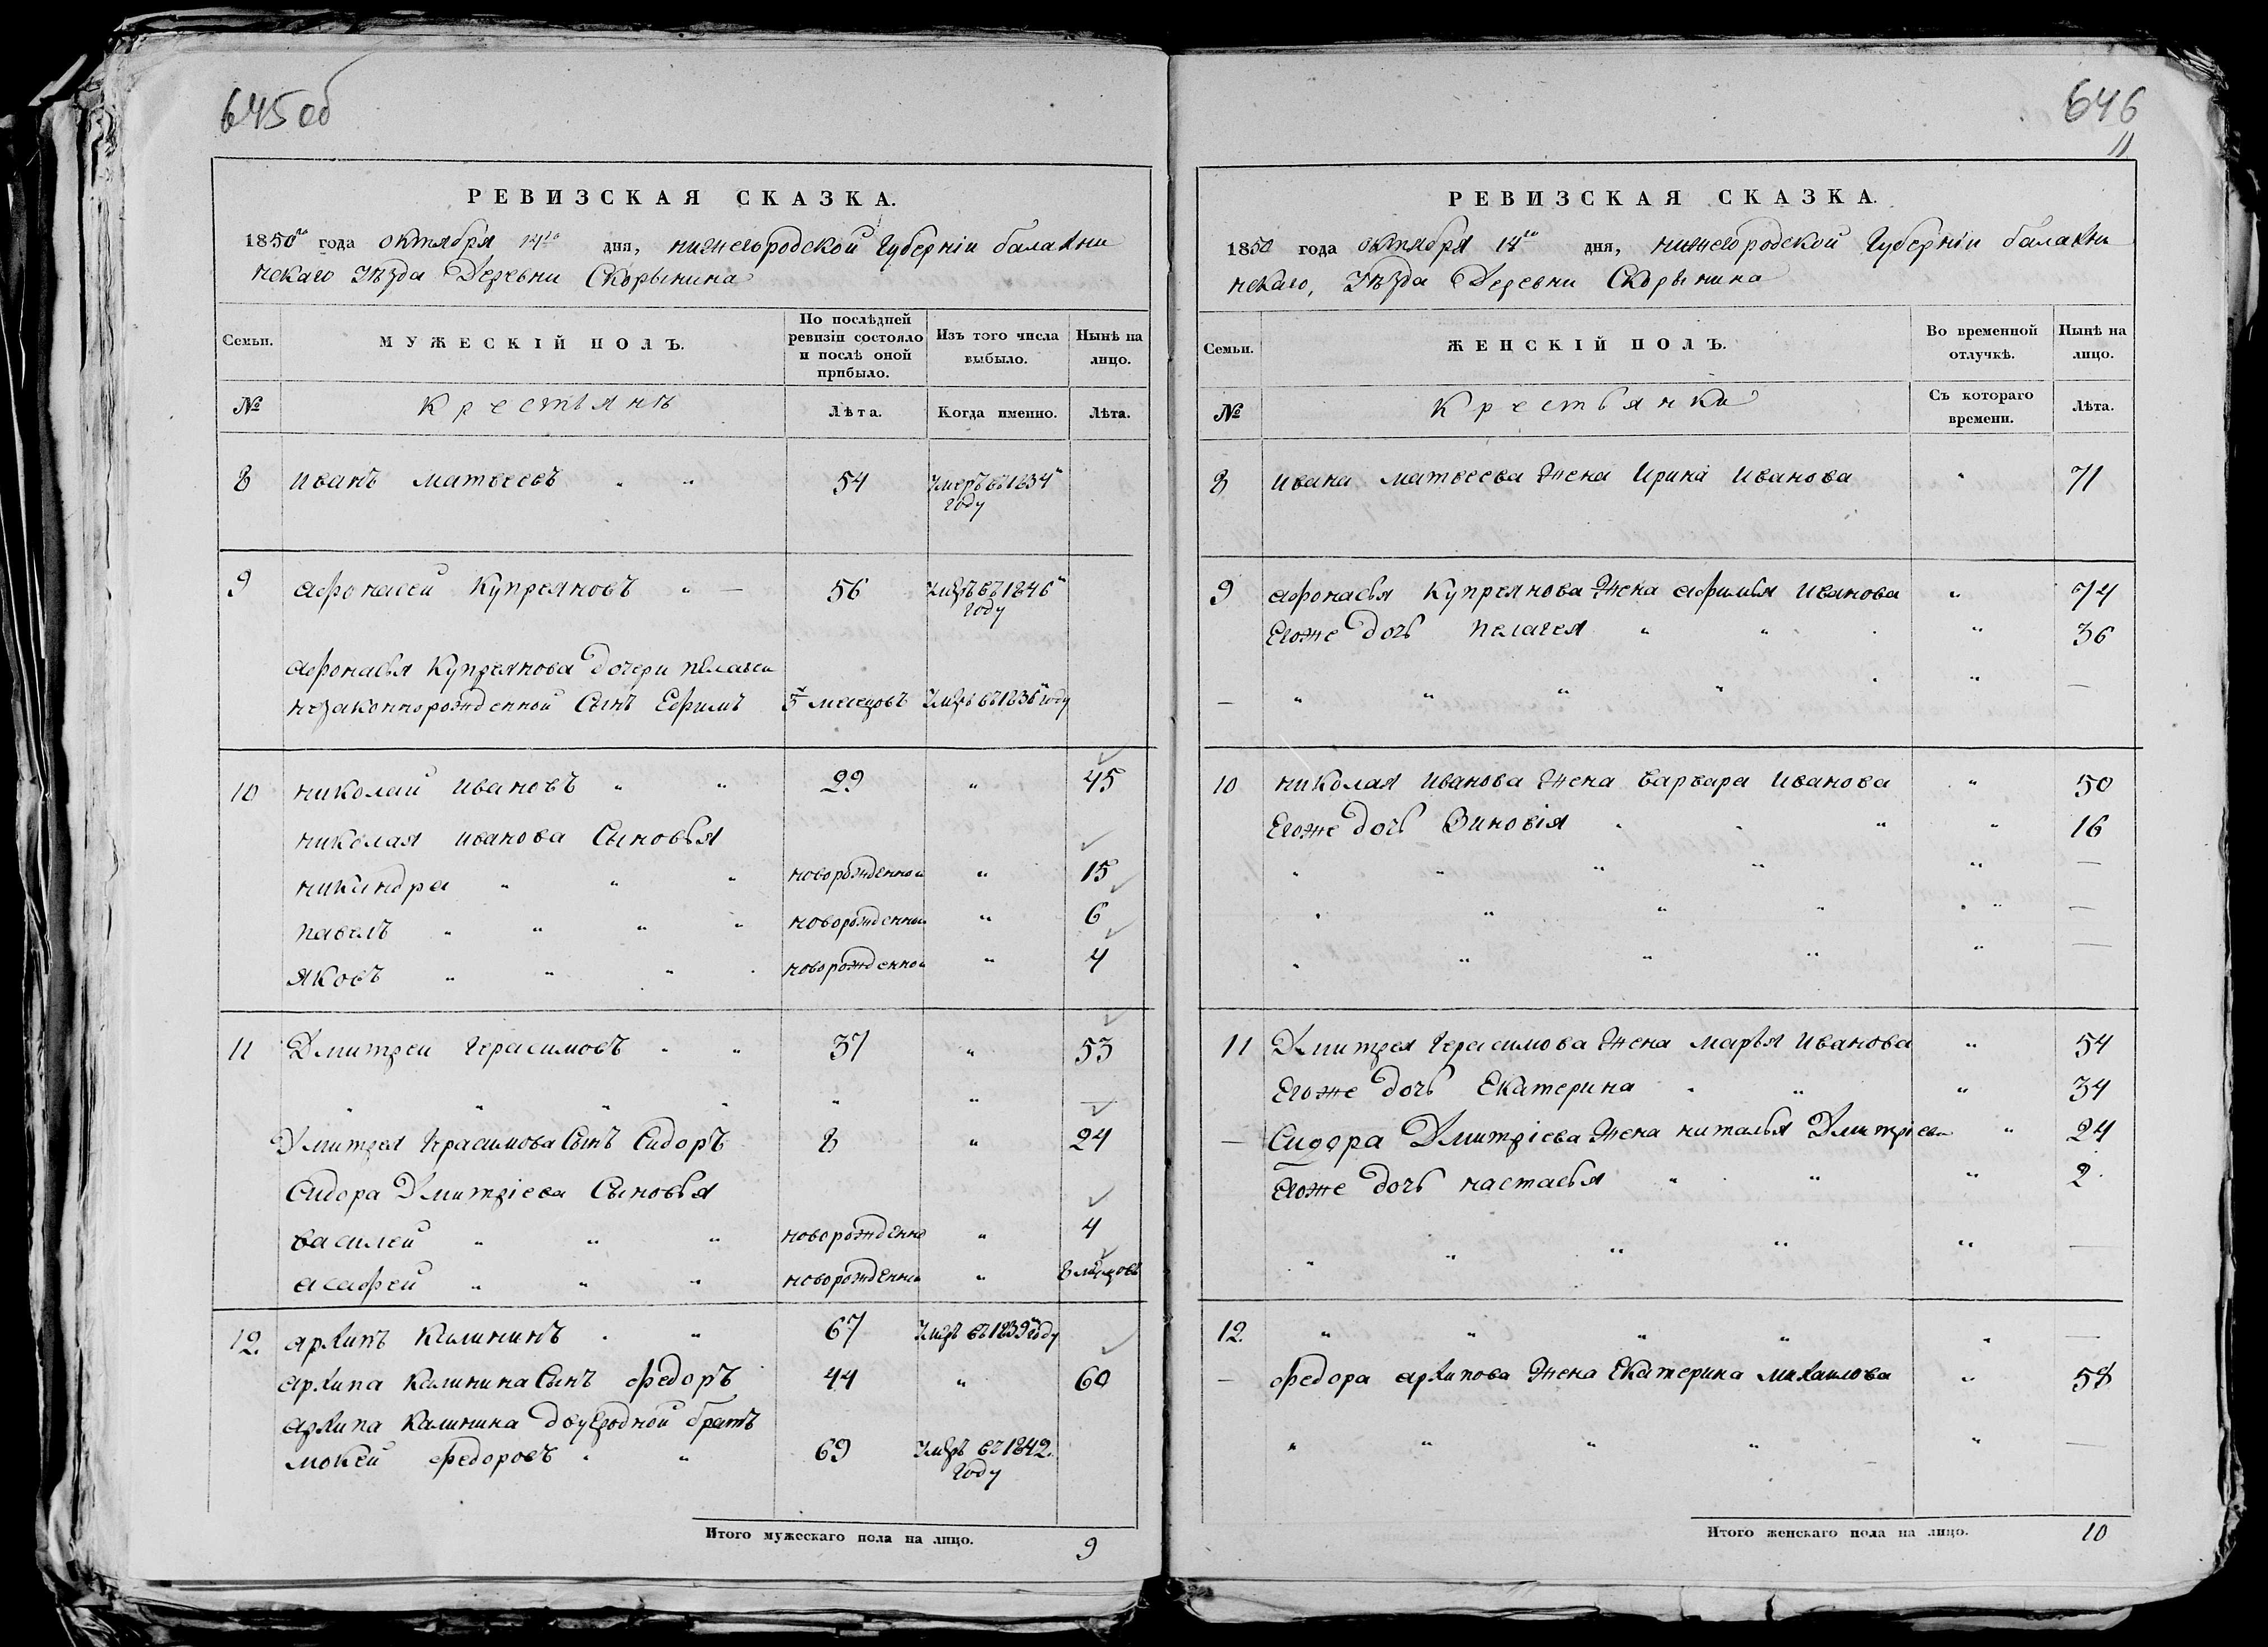 645 об
РЕВИЗСКАЯ СКАЗКА.
1850го года октября дня, нижегородской Губерніи балахни
нскаго Уѣзда Деревни Скорынина
Семьи.
МУЖЕСКІЙ ПОЛЪ.
По послѣдней ревизіи состояло и послѣ оной прибыло.
Изъ того числа выбыло.
Нынѣ на лицо.
№
Крестьянъ
Лѣта.
Когда именно.
Лѣта.
8 иванъ матвеевъ " " 54 Умеръ въ 1834м
Году
9 афонасей Купреяновъ " — 56 Умеръ въ 1846м
Году
афонасья Купреянова дочери пелагеи
незаконнорожденной Сынъ Ефимъ 5 месецовъ Умеръ въ 1836м году
10 николай ивановъ " " 29 " 45
николая иванова Сыновья
никандра " " " новорожденной " 15
павелъ " " " " новорожденной " 6
яковъ " " " " новорожденной " 4
11 Дмитрей Герасимовъ " " 37 " 53
" " " " " " —
Дмитрея Герасимова Сынъ Сидоръ 8 " 24
Сидора Дмитріева Сыновья
василей " " " новорожденно " 4
асафей " " " новорожденной " 8 мѣсецовъ
12. архипъ Калининъ " " 67 Умеръ въ 1839м году
архипа Калинина Сынъ федоръ 44 " 60
архипа Калинина двуюродной братъ
мокей федоровъ " " 69 Умеръ въ 1842.
Году
Итого мужескаго пола на лицо. 9
646
11
РЕВИЗСКАЯ СКАЗКА.
1850 года октября дня, нижегородской Губерніи балахни
нскаго, Уѣзда Деревни Скорынина
Семьи.
ЖЕНСКІЙ ПОЛЪ.
Во временной отлучкѣ.
Нынѣ на лицо.
№
Крестьянки
Съ котораго времени.
Лѣта.
8 ивана матвеева жена Ирина иванова " 71
9 афонасья Купреянова жена афимья иванова " 74
Егоже дочь пелагея " " " " 36
— " " " " " " —
10 николая иванова жена варвара иванова " 50
Егоже дочь Зиновія " " " " 16
" " " " " —
" " " " " —
" " " " " —
11 Дмитрея Герасимова жена марья иванова " 54
Егоже дочь Екатерина " " " 34
— Сидора Дмитріева жена наталья Дмитріева " 24
Егоже дочь настасья " " " 2
" " " " " —
12. " " " " " —
— федора архипова жена Екатерина михаилова " 58
" " " " " —
Итого женскаго пола на лицо. 10